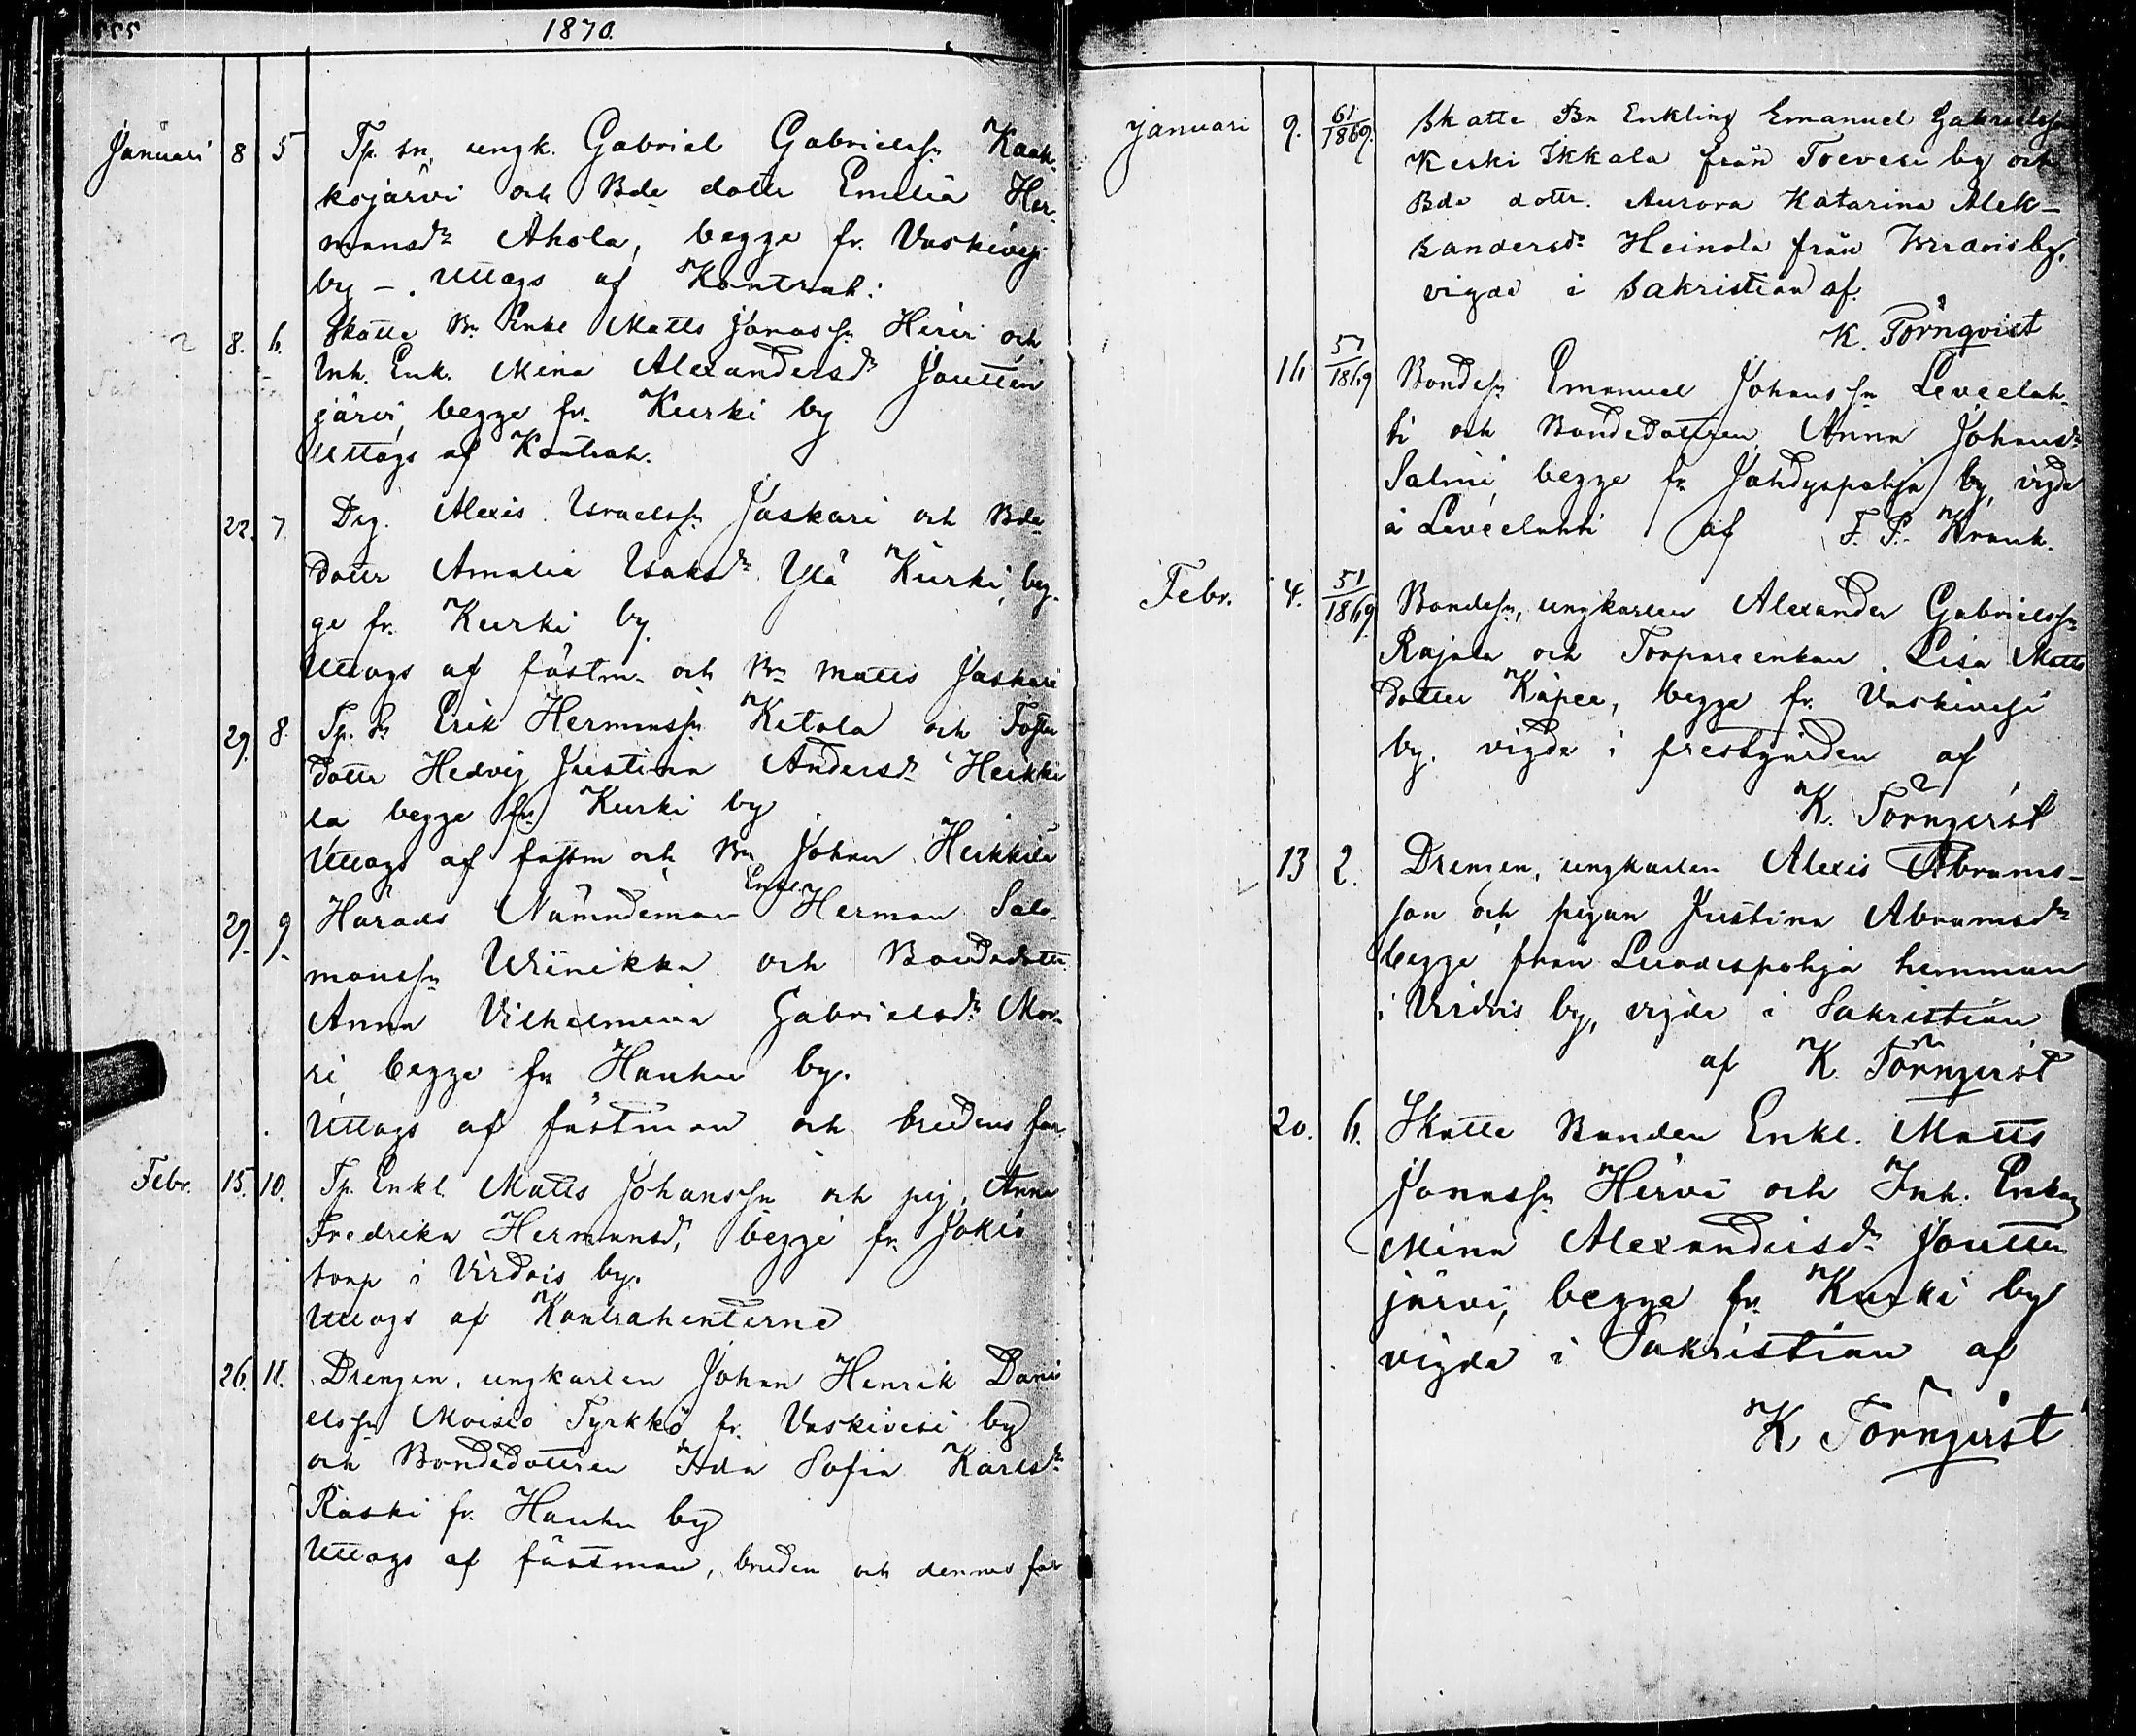 1870.
Januari 8 5 Tp. sn, ungk. Gabriel Gabrielssn Kaak-
kojärvi och Bde dottr Emelia Her-
mansdr Ahola, begge fr. Vaskivesi
by –. Uttogs af Kontrah:
8. 6. Skatte Bn Enkl Matts Jonassn Hirvi och
Inh. Enk. Mina Alexandersdr Joutten
järvi, begge fr. Kurki by
Uttogs af Kontrah.
22. 7 Drg. Alexis Israelssn Jaskari och Bde
dottr Amalia Isaksdr Ylä Kurki, beg-
ge fr. Kurki by.
Uttogs af fästm. och Bn Matts Jaskari
29. 8. Tp. Sn Erik Hermanssn Ketola och Foster
dottr Hedvig Justina Andersdr Heikki
lä begge fr. Kurki by
Uttogs af fästm och Bn Johan Heikkilä
29. 9. Härads Nämndeman Enkl Herman Salo-
monssn Uriinikka och Bondedottr
Anna Vilhelmina Gabrielsdr Mar-
ri begge fr Hauhu by.
Uttogs af fästman och brudens far.
Febr. 15. 10. Tp. Enkl. Matts Johanssn och pig. Anna
Fredrika Hermansd, begge fr. Jokis
torp i Virdois by.
Uttogs af Kontrahenterne
26. 11. Drengen, ungkarlen Johan Henrik Dani
elssn Moisio Tyrkkö fr. Vaskivesi by
och Bondedottren Ida Sofia Karlsdr
Raski fr. Hauhu by
Uttogs af fästman, bruden och dennes far
Januari 9. 61/1869. Skatte Bn Enkling Emanuel Gabrielssn
Keski Ikkala från Toevesi by och
Bde dottr. Aurora Katarina Alek–
sandersdr Heinola från Virdois by.
vigde i Sakristian af.
K. Törnqvist
16 51/1869 Bondesn Emanuel Johanssn Leveelah-
ti och Bondedottren Anna Johansdr
Salmi, begge fr Jähdyspohja by, vigde
å Leveelahti af F. P. Krank.
Febr. 4. 51/1869 Bondesn, ungkarlen Alexander Gabrielssn
Rajala och Torpareenkan Lisa Matts
dotter Käpee, begge fr. Vaskivesi
by. vigde i prestgården af
K. Törnqvist
13 2. Drengen, ungkarlen Alexis Abrams–
son och pigan Justina Abramsdr
begge från Luodespohja hemman
i Virdois by, vigde i Sakristian
af K. Törnqvist
20. 6. Skatte Bonden Enkl. Matts
Jonassn Hirvi och Inh. Enkan
Mina Alexandersdr Joutten
järvi, begge fr. Kurki by
vigde i Sakristian af
K Törnqvist